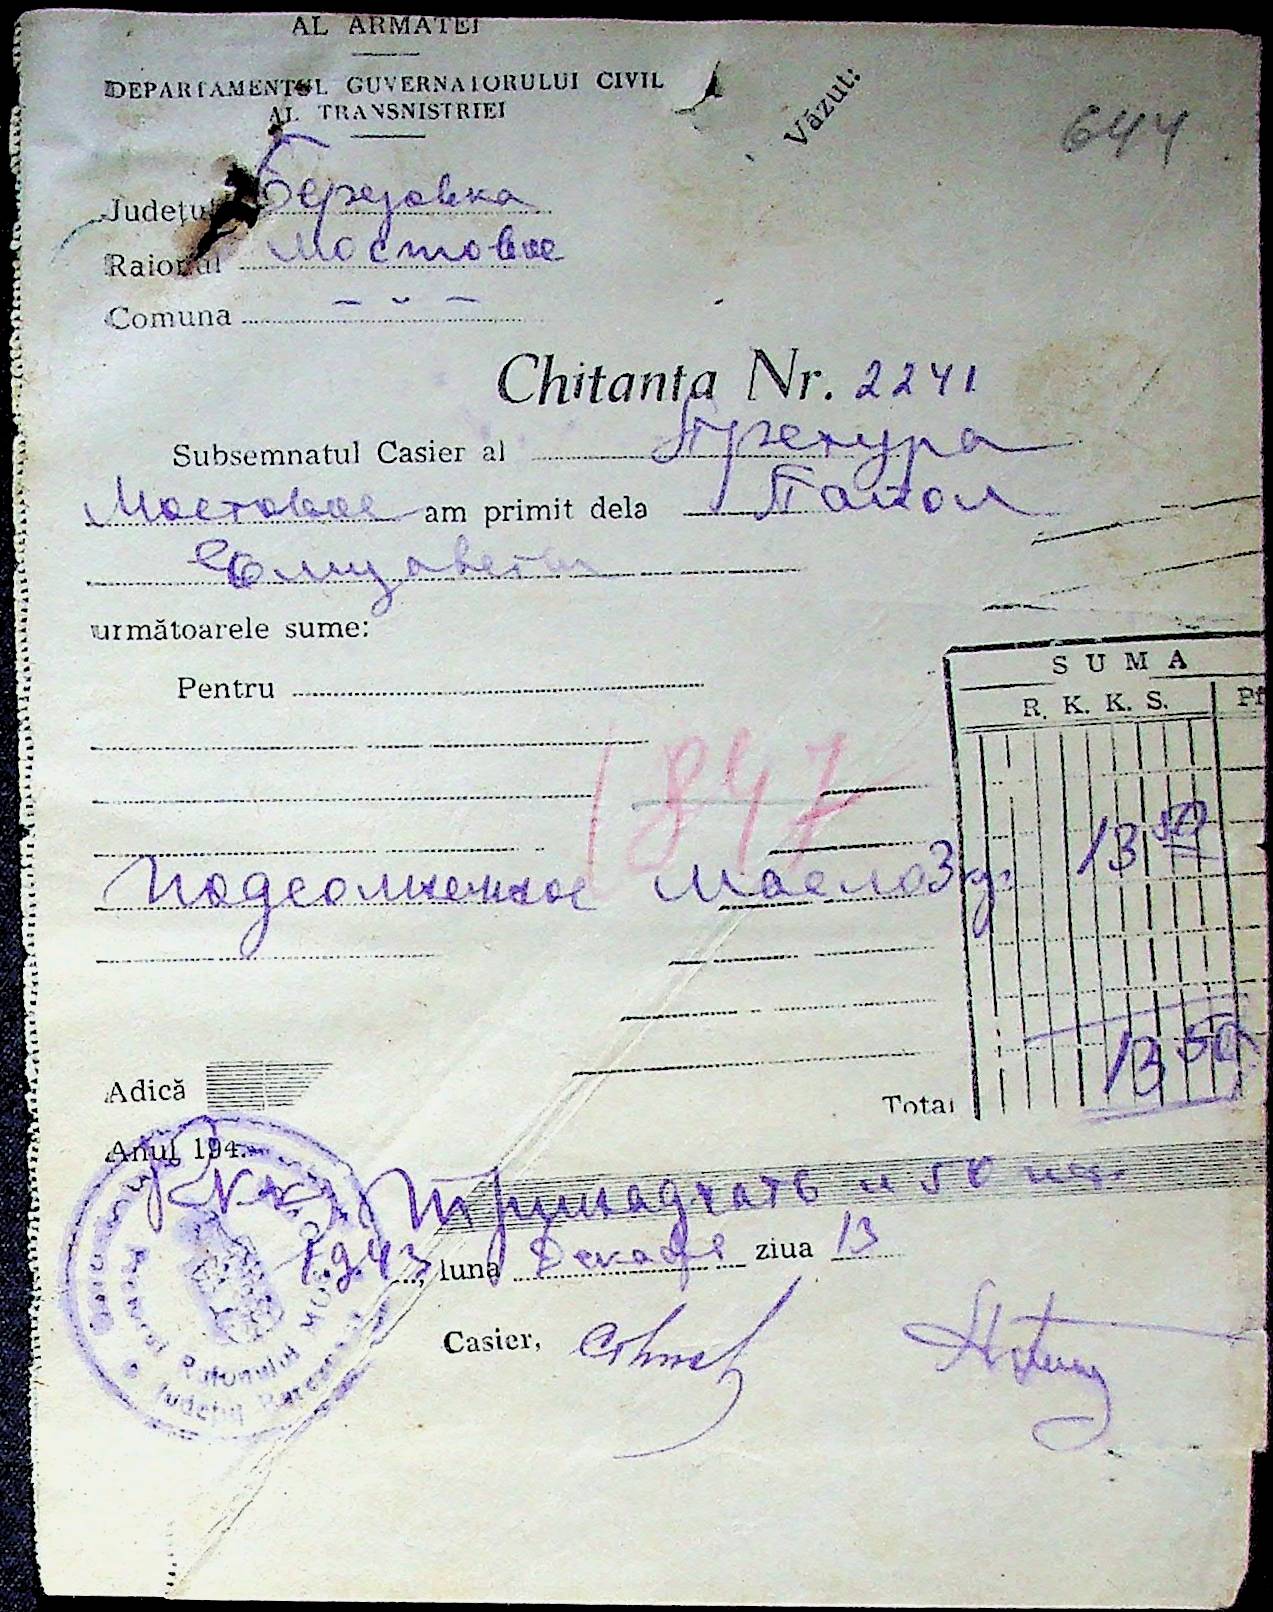 AL ARMATEI
DEPARTAMENTUL GUVERNATORULUI CIVIL
AL TRANSNISTRIEI
Văzut:
644
Județul Березовка
Raionul Мостовое
Comuna
Chitanta Nr. 2241
Subsemnatul Casier al Претура
Мостовое am primit dela
Елизавета
următoarele sume:
Pentru
SUMA
R. K. K. S. Pf
1847
13 50
Подсолнечное масло 3
13 50
Adică
Total
Anul 194
Тринадчать и 50
1943, luna Декабря ziua 13
Casier,
Raionului
Județul